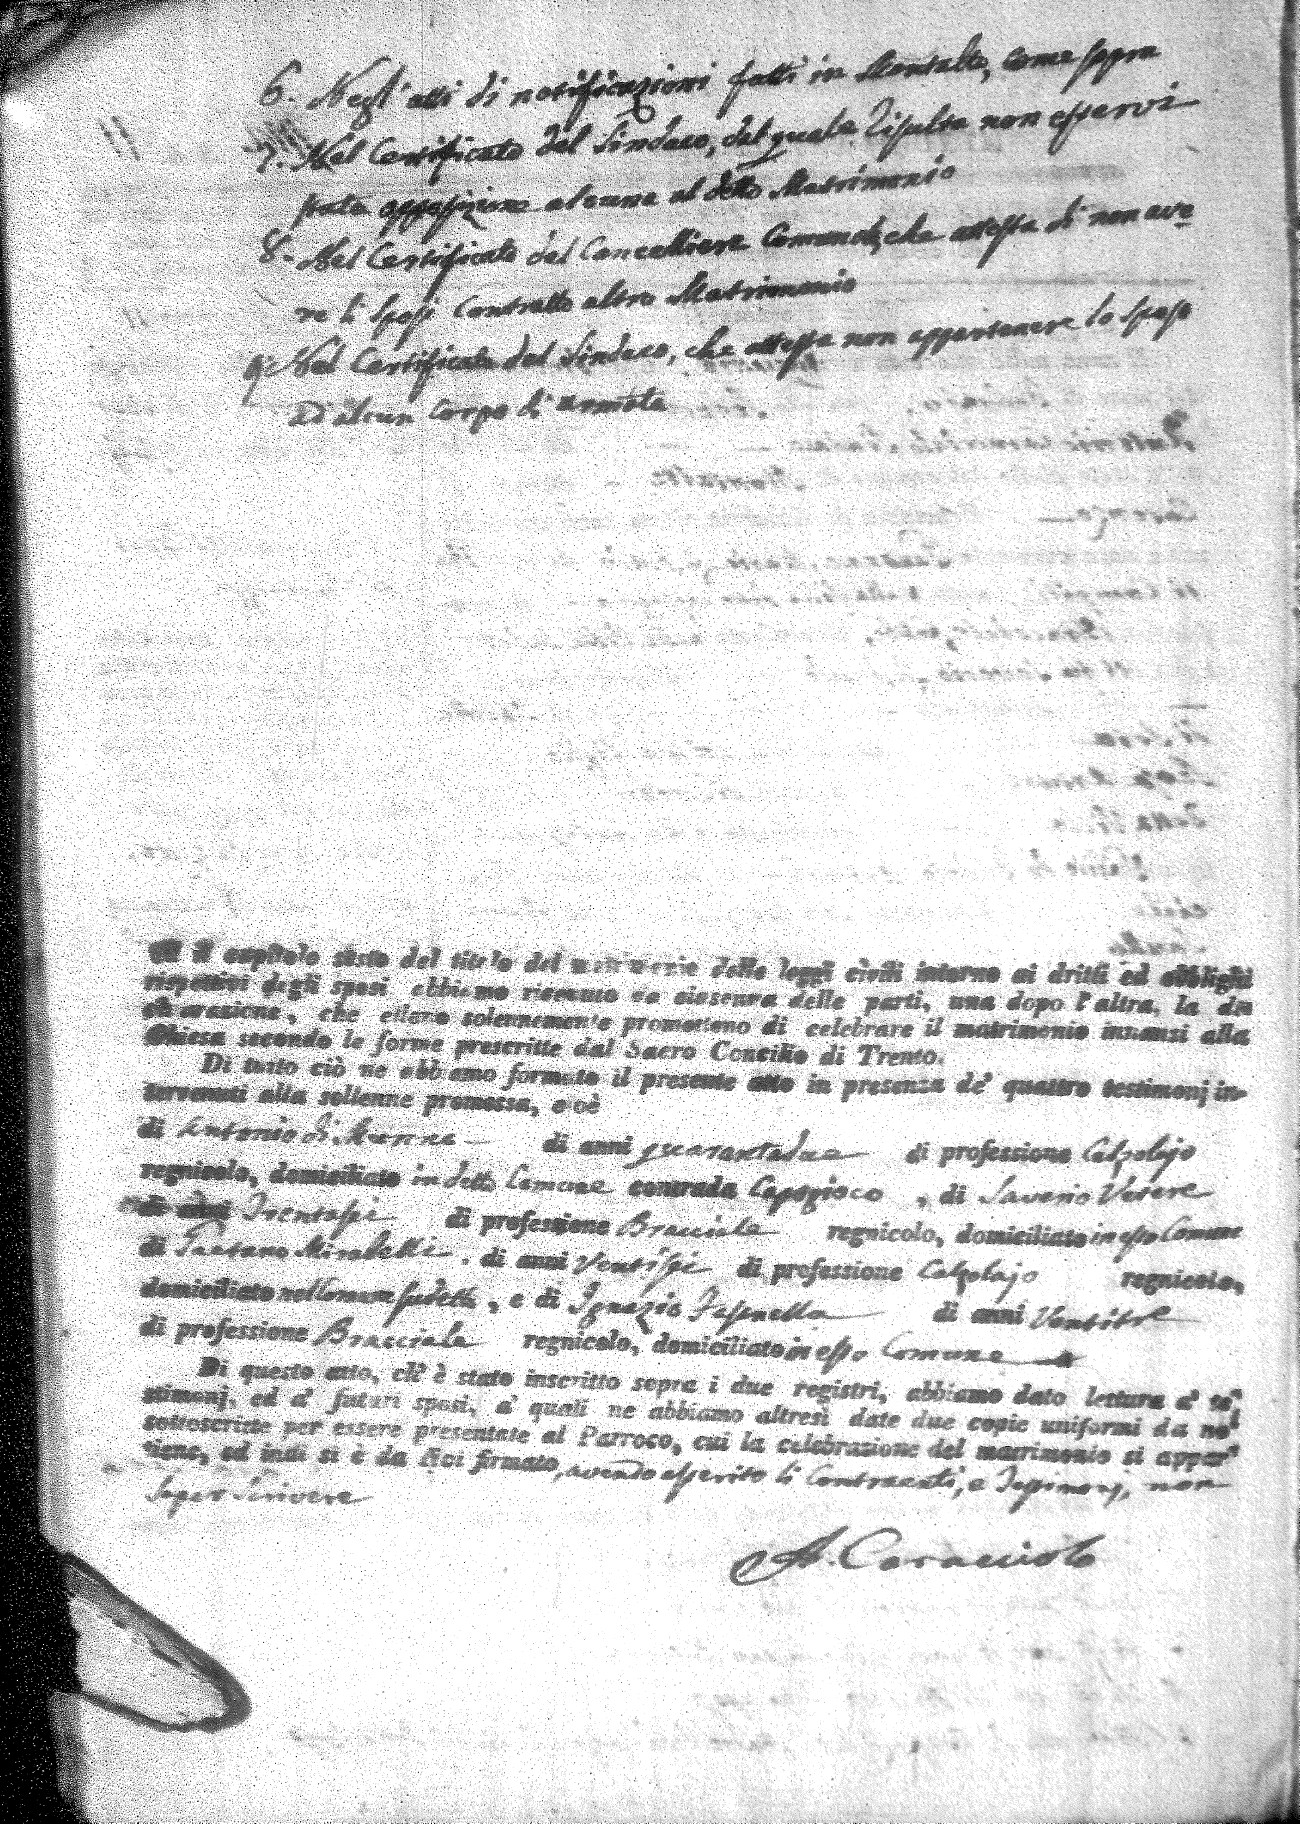 6. Negl'atti di notificazioni fatti in Montalto, come sopra
7. Nel Certificato del Sindaco, del quale risulta non esservi
stata opposizione alcuna al detto Matrimonio
8. Nel Certificato del Cancelliere Comunale, che attesta di non ave
re li sposi Contratto altro Matrimonio
9. Nel Certificato del Sindaco, che attesta non appartenere lo sposo
ad alcun Corpo d'armata
il capitolo sesto del titolo del matrimonio delle leggi civili intorno ai dritti ed obblighi
rispettivi degli sposi abbiamo ricevuto da ciascuna delle parti, una dopo l'altra, la di
chiarazione, che elleno solennemente promettono di celebrare il matrimonio innanzi alla
Chiesa secondo le forme prescritte dal Sacro Concilio di Trento.
Di tutto ciò ne abbiamo formato il presente atto in presenza de' quattro testimonj in-
tervenuti alla sollenne promessa, cioè
di Antonio di Munno di anni quarantadue di professione Calzolajo
regnicolo, domiciliato in detto Comune contrada Capopioco, di Saverio Vetere
di anni Trentasei di professione Bracciale regnicolo, domiciliato in esso Comune
di Gaetano Mirabelli, di anni Ventisei di professione Calzolajo regnicolo,
domiciliato nel Comune sudetto, e di Ignazio di anni Ventitre
di professione Bracciale regnicolo, domiciliato in esso Comune
Di questo atto, ch'è stato inscritto sopra i due registri, abbiamo dato lettura a' te-
stimonj, ed a' futuri sposi, a' quali ne abbiamo altresì date due copie uniformi da noi
sottoscritte per essere presentate al Parroco, cui la celebrazione del matrimonio si appar-
tiene, ed indi si è da noi firmato, avendo asserito li Contraenti, e Testimonj, non
saper Scrivere
A. Caracciolo